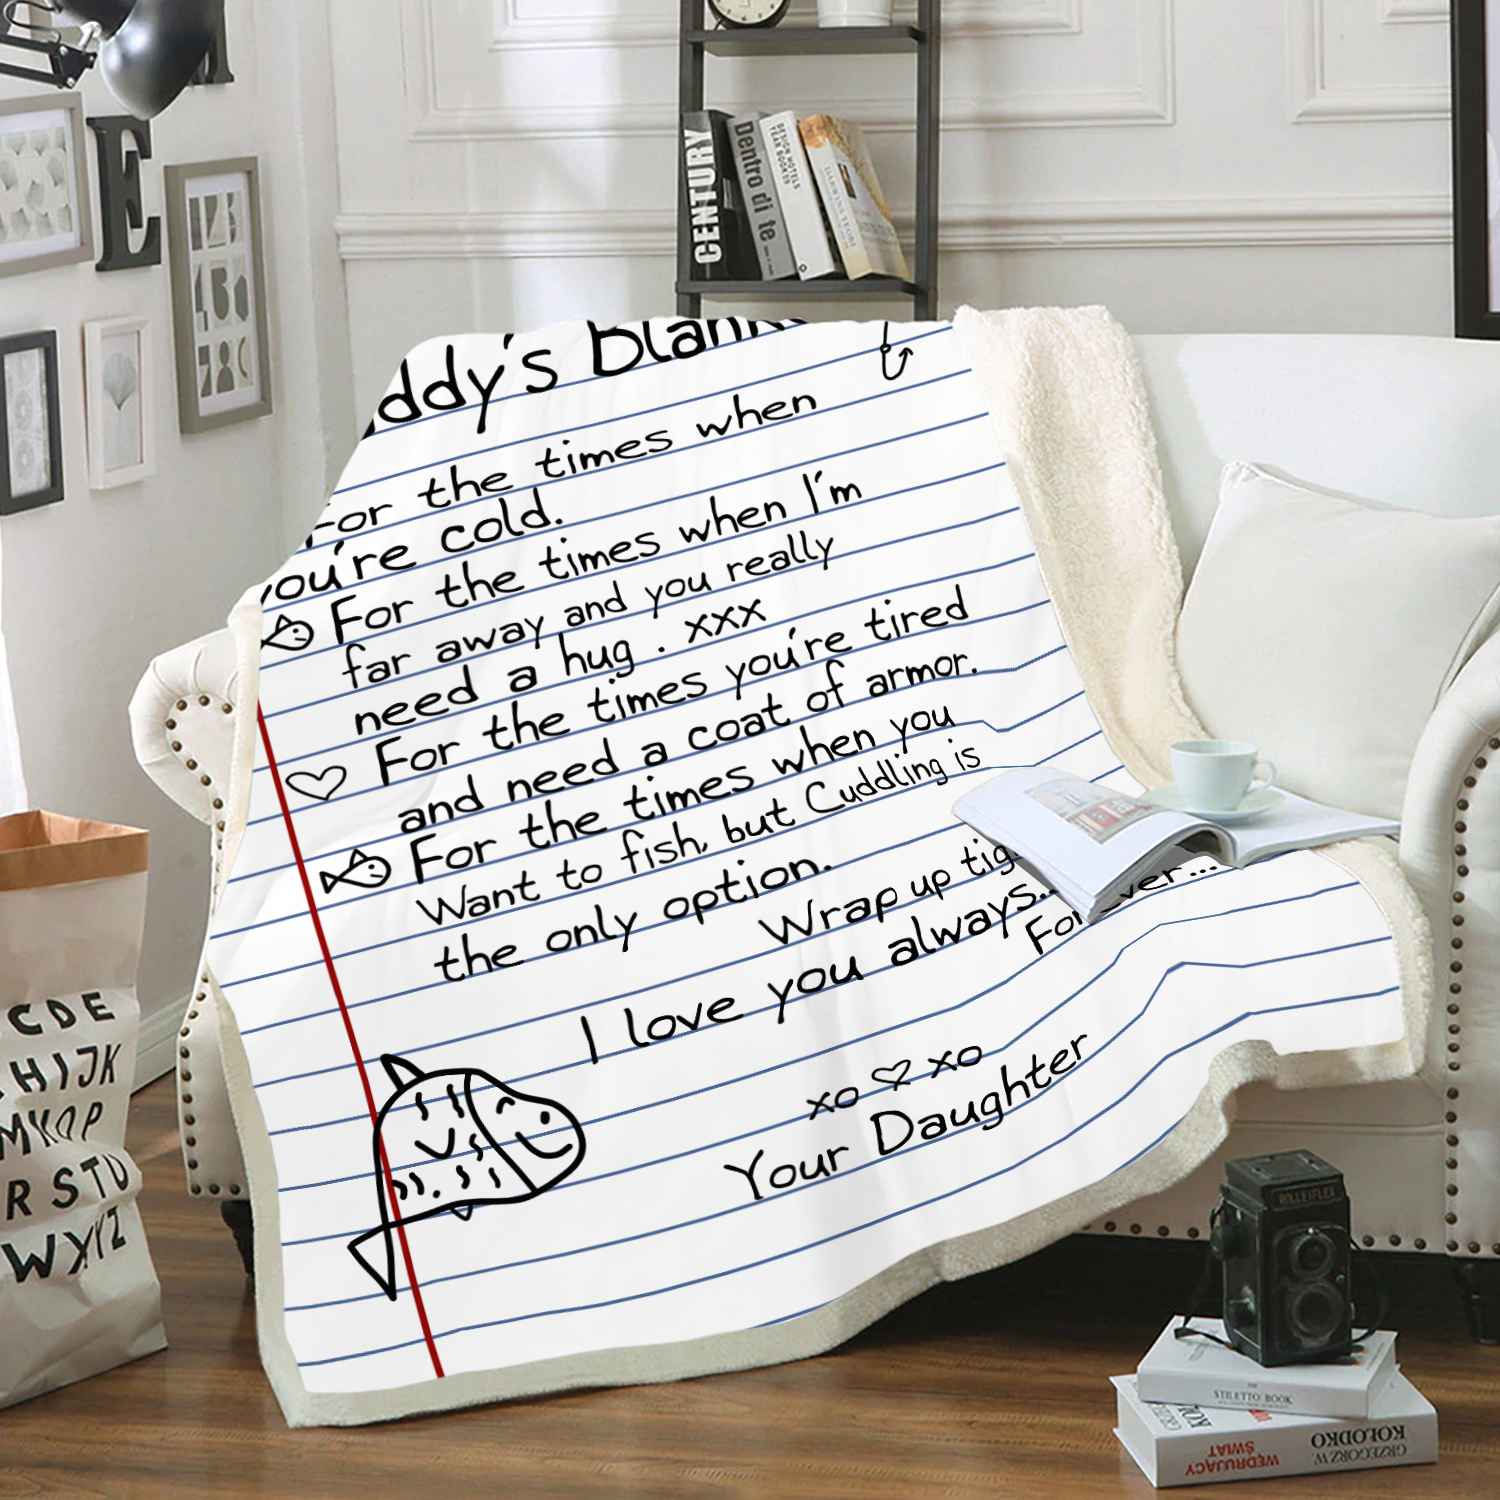 E
CENTURY
Dentro di te
DESIGN HOTELS
YEAR BOOK
ddy's Blan
For the times when
you're cold.
For the times when I'm
far away and you really
need a hug . xxx
For the times you're tired
and need a coat of armor.
For the times when you
Want to fish, but Cuddling is
the only option.
Wrap up tig
I love you always...
For ver...
xo xo
Your Daughter
C D E
H I J K
M N O P
R S T U
W X Y Z
ROLLEIFLEX
THE
STILETTO BOOK
GRZEGORZ W.
KOŁODKO
WĘDRUJĄCY
ŚWIAT